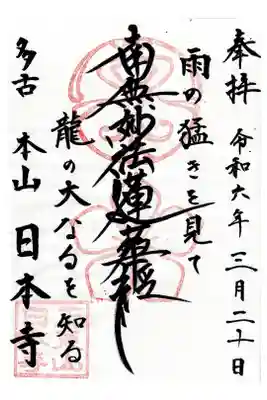 奉拝 令和六年 三月二十日
雨の猛きを見て
南無妙法蓮華経
龍の大なるを知る
多古 本山 日本寺